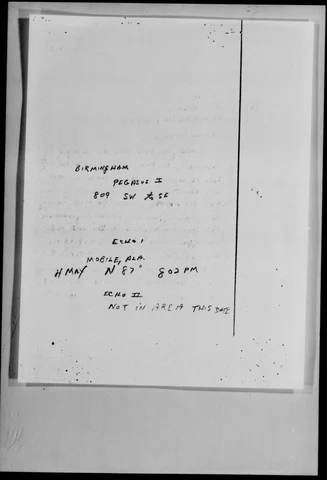 BIRMINGHAM
PEGASUS I
809 SW to SE
ECHO I
MOBILE, ALA.
4 MAY N 87° 802 PM
ECHO II
NOT IN AREA THIS DATE